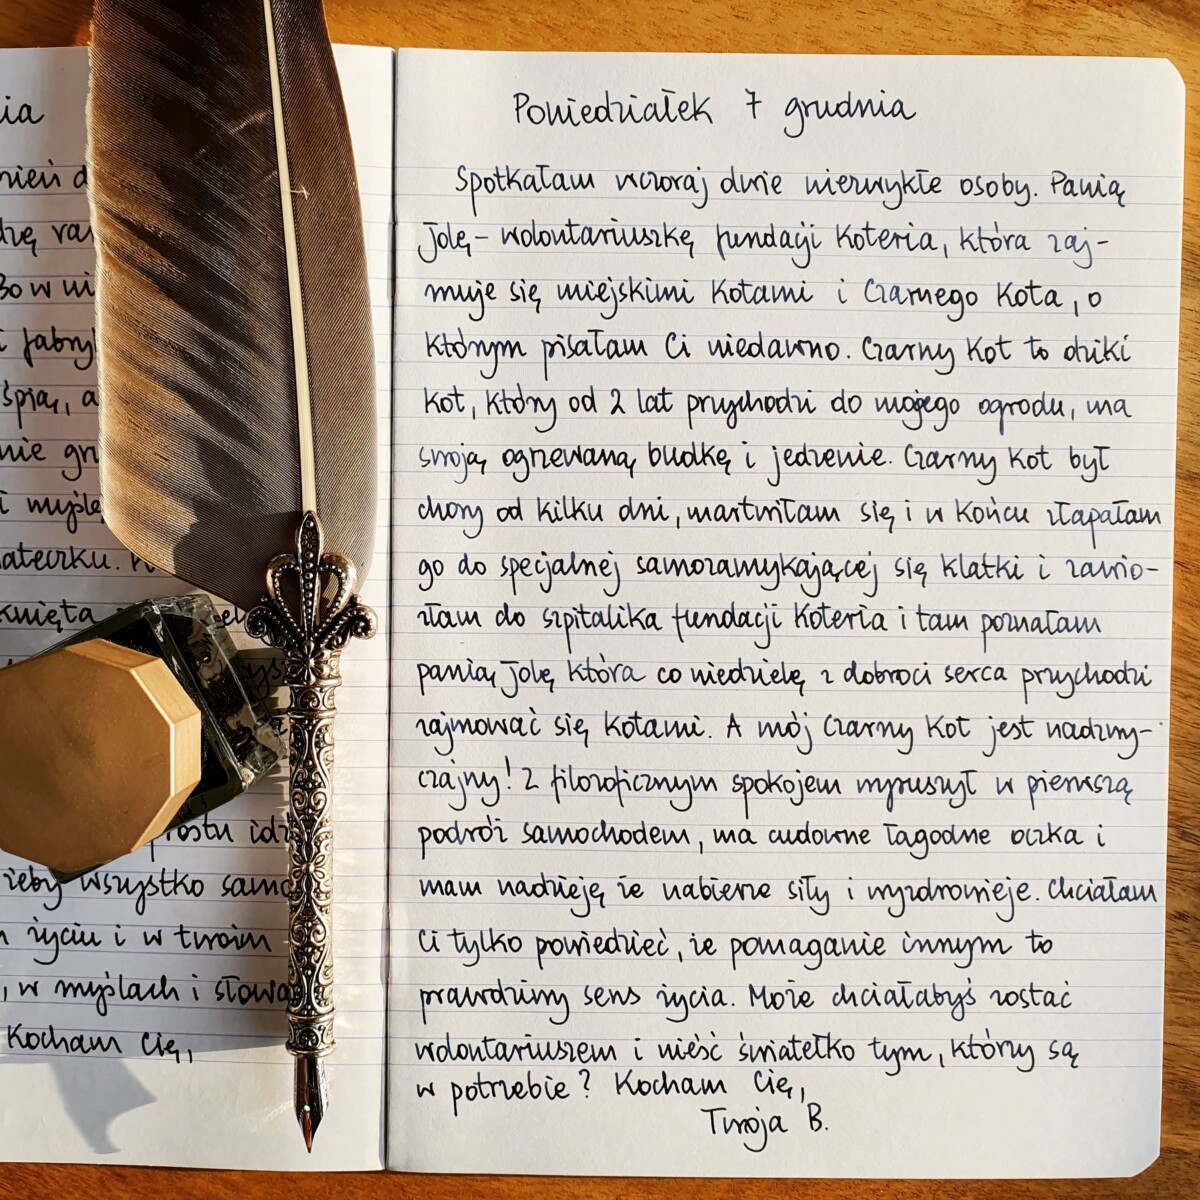 ia
Poniedziałek 7 grudnia
Spotkałam wczoraj dwie niezwykłe osoby. Panią
Jolę - wolontariuszkę fundacji Koteria, która zaj-
muje się miejskimi kotami i Czarnego Kota, o
którym pisałam Ci niedawno. Czarny Kot to dziki
kot, który od 2 lat przychodzi do mojego ogrodu, ma
swoją ogrzewaną budkę i jedzenie. Czarny Kot był
chory od kilku dni, martwiłam się i w końcu złapałam
go do specjalnej samozamykającej się klatki i zawio-
złam do szpitalika fundacji Koteria i tam poznałam
panią Jolę która co niedzielę z dobroci serca przychodzi
zajmować się kotami. A mój Czarny Kot jest nadzwy-
czajny! Z filozoficznym spokojem wyruszył w pierwszą
podróż samochodem, ma cudowne łagodne oczka i
mam nadzieję że nabierze siły i wyzdrowieje. Chciałam
Ci tylko powiedzieć, że pomaganie innym to
prawdziwy sens życia. Może chciałabyś zostać
wolontariuszem i nieść światełko tym, którzy są
w potrzebie? Kocham Cię,
Twoja B.
śpią, a
nie
i
Bo w
żeby wszystko
życiu i w twoim
, w myślach i
Kocham Cię,